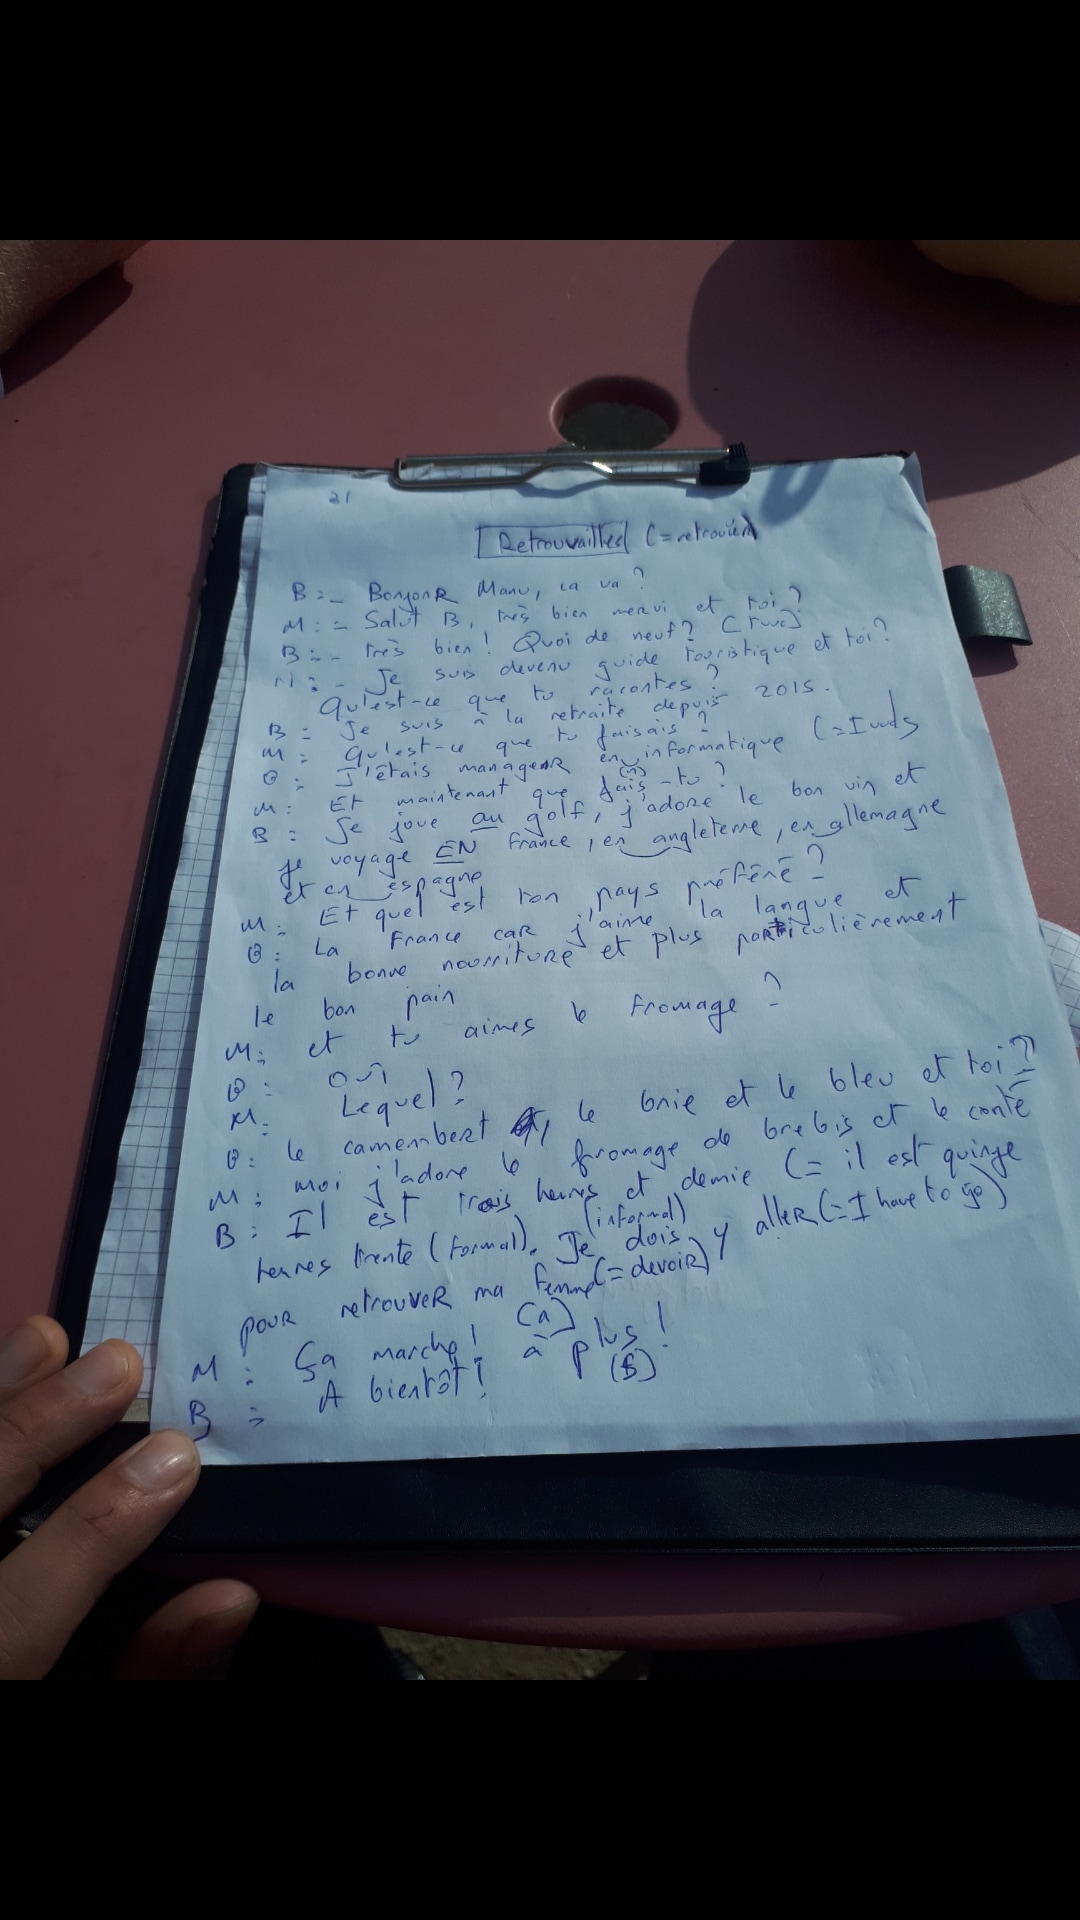 21
Retrouvailles
B: - BonjouR Manu, ca va?
M: - Salut B, très bien merci et toi?
B: - très bien! Quoi de neuf?
M: - Je suis devenu guide touristique et toi?
Qu'est-ce que tu racontes?
B = Je suis à la retraite depuis 2015.
M: Qu'est-ce que tu faisais?
B: J'étais manageR en informatique
(n)
M: Et maintenant que fais-tu?
B: Je joue au golf, j'adore le bon vin et
je voyage EN France, en angleterre, en allemagne
et en espagne
M: Et quel est ton pays préféré?
B: La France car j'aime la langue et
la bonne nourriture et plus particulièrement
le bon pain
M: et tu aimes le fromage?
B: Oui
M: Lequel?
B: le camembert, le brie et le bleu et toi?
M: moi j'adore le fromage de brebis et le comté
B: Il est trois heures et demie (= il est quinze
(informal)
heures trente (formal). Je dois y alleR (= I have to go)
(= devoiR)
pouR retrouveR ma femme
M: Ça marche! à plus!
(a) (S)
B: A bientôt!